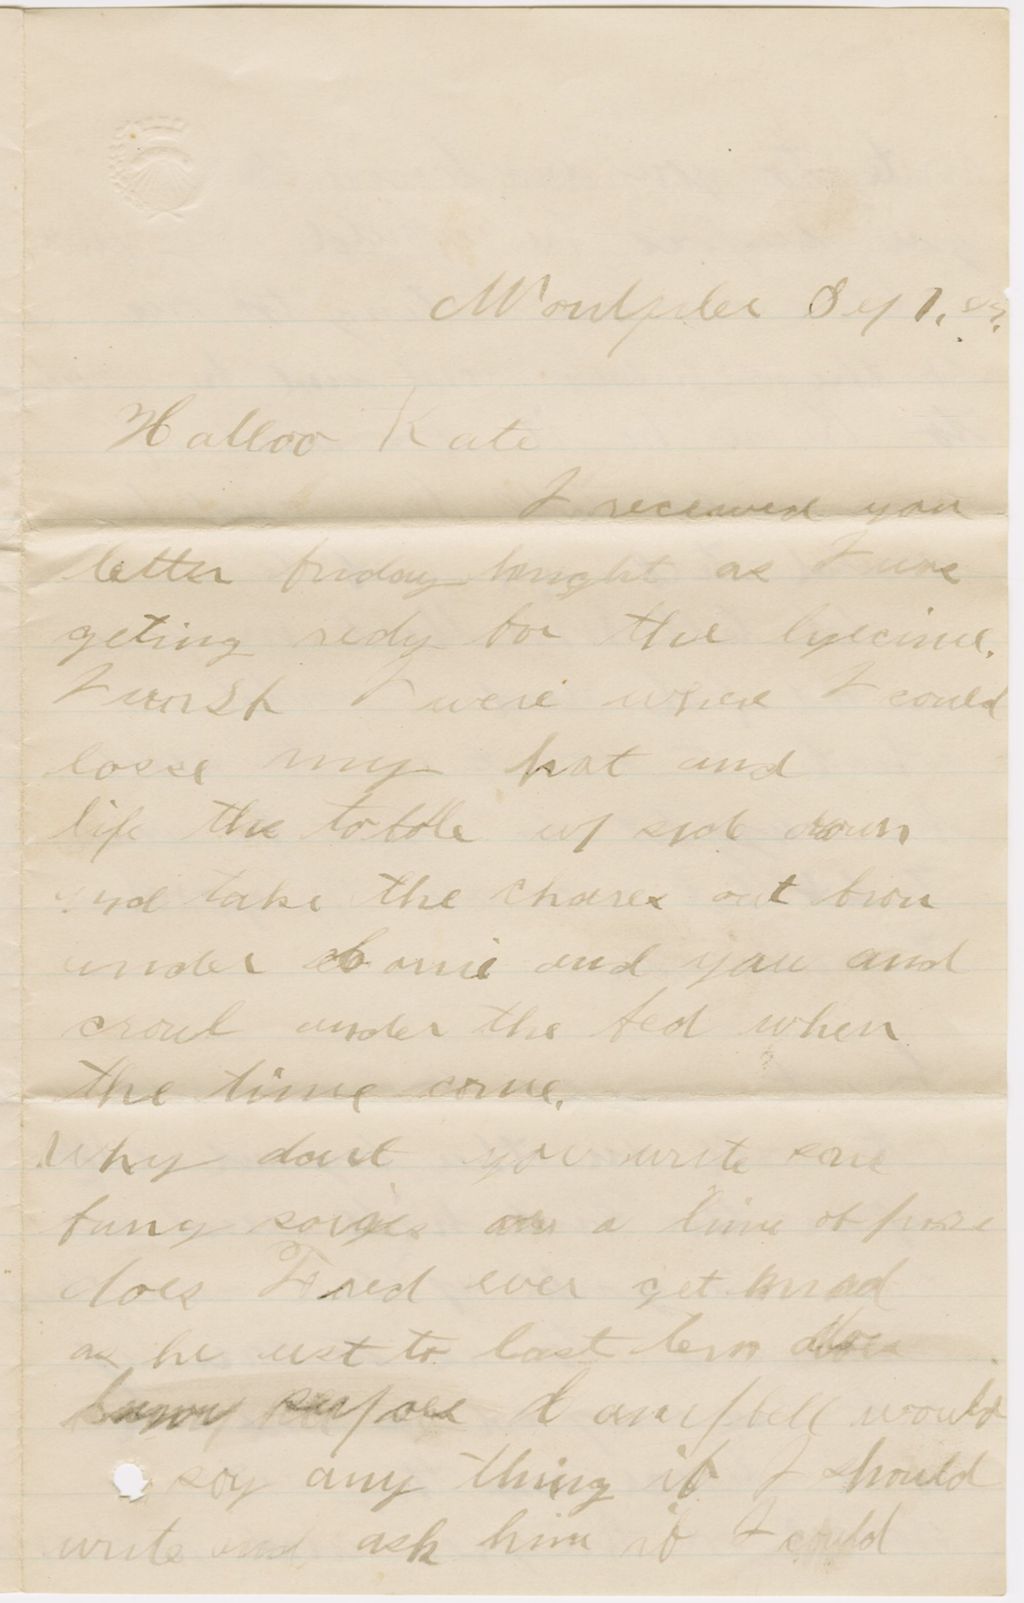 Montpelier Sep 1.
Halloo Kate
I received you
letter friday tonight as I was
geting redy for the lyecime.
I wish I were where I could
losse my hat and
life the tobble up side down
and take the chares out from
under and you and
croul under the bed when
the time come.
Why dont you write some
funy or a line of
does Fred ever get mad
as he ust to last term
Campbell would
say any thing if I should
write and ask him if I could